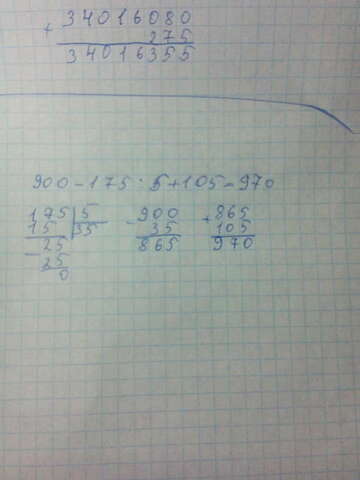 + 34016080
275
34016355
900 - 175 : 5 + 105 = 970
175 | 5 - 900 + 865
15 | 35 35 105
- 25 865 970
25
0